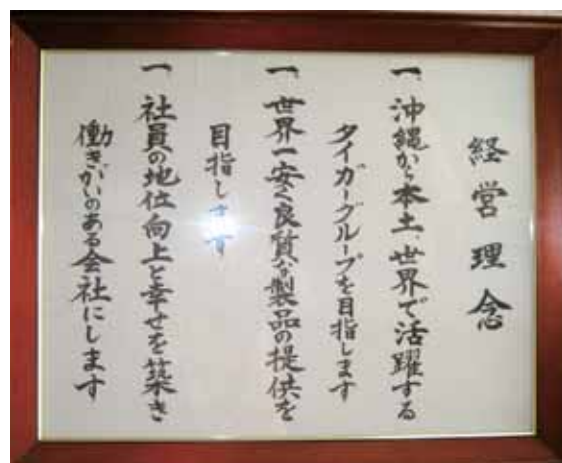 経営理念
一、沖縄から本土、世界で活躍する
タイガーグループを目指します
一、世界一安く良質な製品の提供を
目指します
一、社員の地位向上と幸せを築き
働きがいのある会社にします